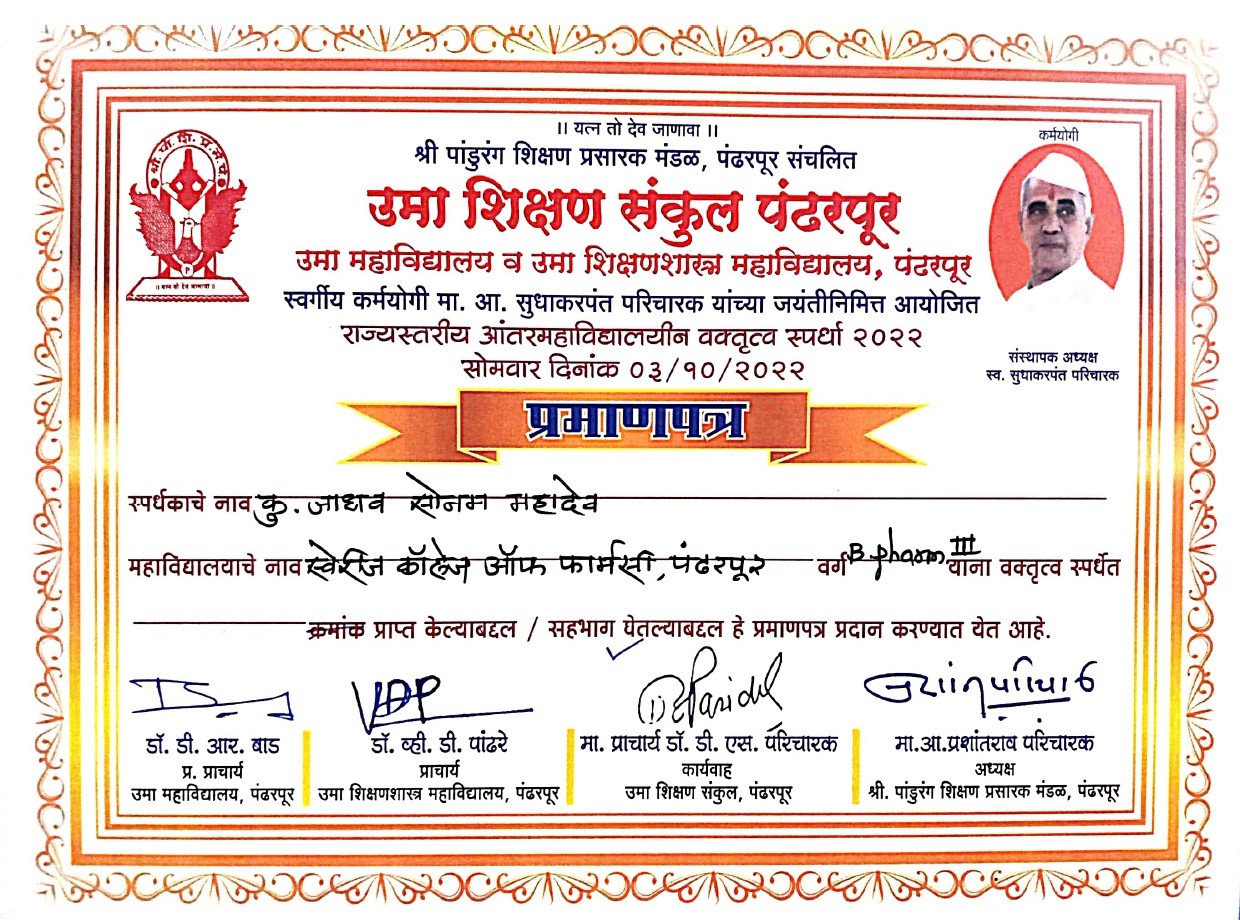 ।। यत्न तो देव जाणावा ।।
श्री पांडुरंग शिक्षण प्रसारक मंडळ, पंढरपूर संचलित
उमा शिक्षण संकुल पंढरपूर
उमा महाविद्यालय व उमा शिक्षणशास्त्र महाविद्यालय, पंढरपूर
स्वर्गीय कर्मयोगी मा. आ. सुधाकरपंत परिचारक यांच्या जयंतीनिमित्त आयोजित
राज्यस्तरीय आंतरमहाविद्यालयीन वक्तृत्व स्पर्धा २०२२
सोमवार दिनांक ०३/१०/२०२२
श्री. पां. शि. प्र. मं. पं.
।। यत्न तो देव जाणावा ।।
कर्मयोगी
संस्थापक अध्यक्ष
स्व. सुधाकरपंत परिचारक
प्रमाणपत्र
स्पर्धकाचे नाव कु. जाधव सोनम महादेव
महाविद्यालयाचे नाव स्वेरीज कॉलेज ऑफ फार्मसी, पंढरपूर वर्ग B pharm III यांना वक्तृत्व स्पर्धेत
क्रमांक प्राप्त केल्याबद्दल / सहभाग घेतल्याबद्दल हे प्रमाणपत्र प्रदान करण्यात येत आहे.
डॉ. डी. आर. बाड
प्र. प्राचार्य
उमा महाविद्यालय, पंढरपूर
डॉ. व्ही. डी. पांढरे
प्राचार्य
उमा शिक्षणशास्त्र महाविद्यालय, पंढरपूर
मा. प्राचार्य डॉ. डी. एस. परिचारक
कार्यवाह
उमा शिक्षण संकुल, पंढरपूर
मा.आ.प्रशांतराव परिचारक
अध्यक्ष
श्री. पांडुरंग शिक्षण प्रसारक मंडळ, पंढरपूर